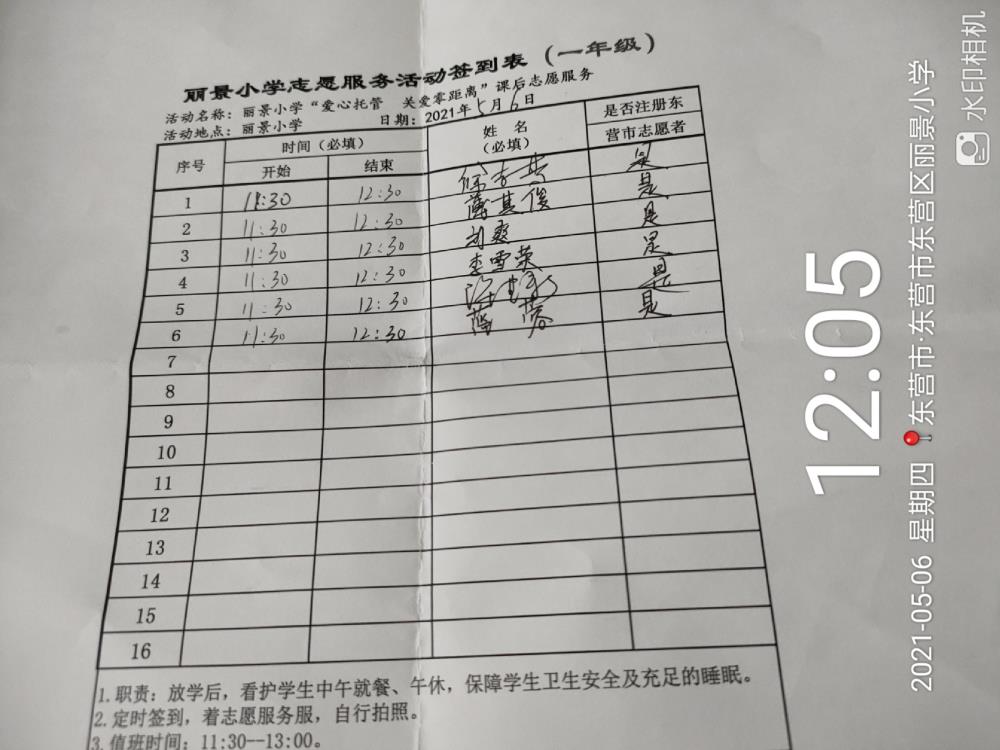 丽景小学志愿服务活动签到表（一年级）
活动名称：丽景小学“爱心托管 关爱零距离”课后志愿服务
活动地点：丽景小学 日期：2021年5月6日
序号 时间（必填） 姓名（必填） 是否注册东营市志愿者
开始 结束
1 11:30 12:30 是
2 11:30 12:30 薄其俊 是
3 11:30 12:30 刘爽 是
4 11:30 12:30 李雪荣 是
5 11:30 12:30 是
6 11:30 12:30 是
7
8
9
10
11
12
13
14
15
16
1.职责：放学后，看护学生中午就餐、午休，保障学生卫生安全及充足的睡眠。
2.定时签到，着志愿服务服，自行拍照。
3.值班时间：11:30--13:00。
12:05
2021-05-06 星期四 东营市·东营市东营区丽景小学
水印相机